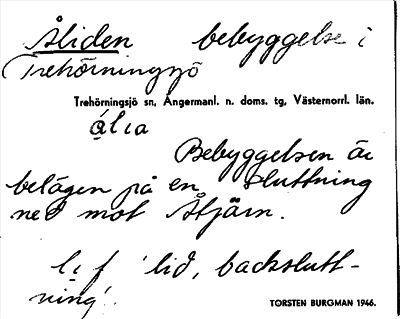 Åliden bebyggelse i
Trehörningsjö
Trehörningsjö sn, Ångermanl. n. doms. tg, Västernorrl. län.
ålia
Bebyggelsen är
belägen på en sluttning
ned mot Åtjärn.
li f 'lid, backslutt-
ning'.
TORSTEN BURGMAN 1946.